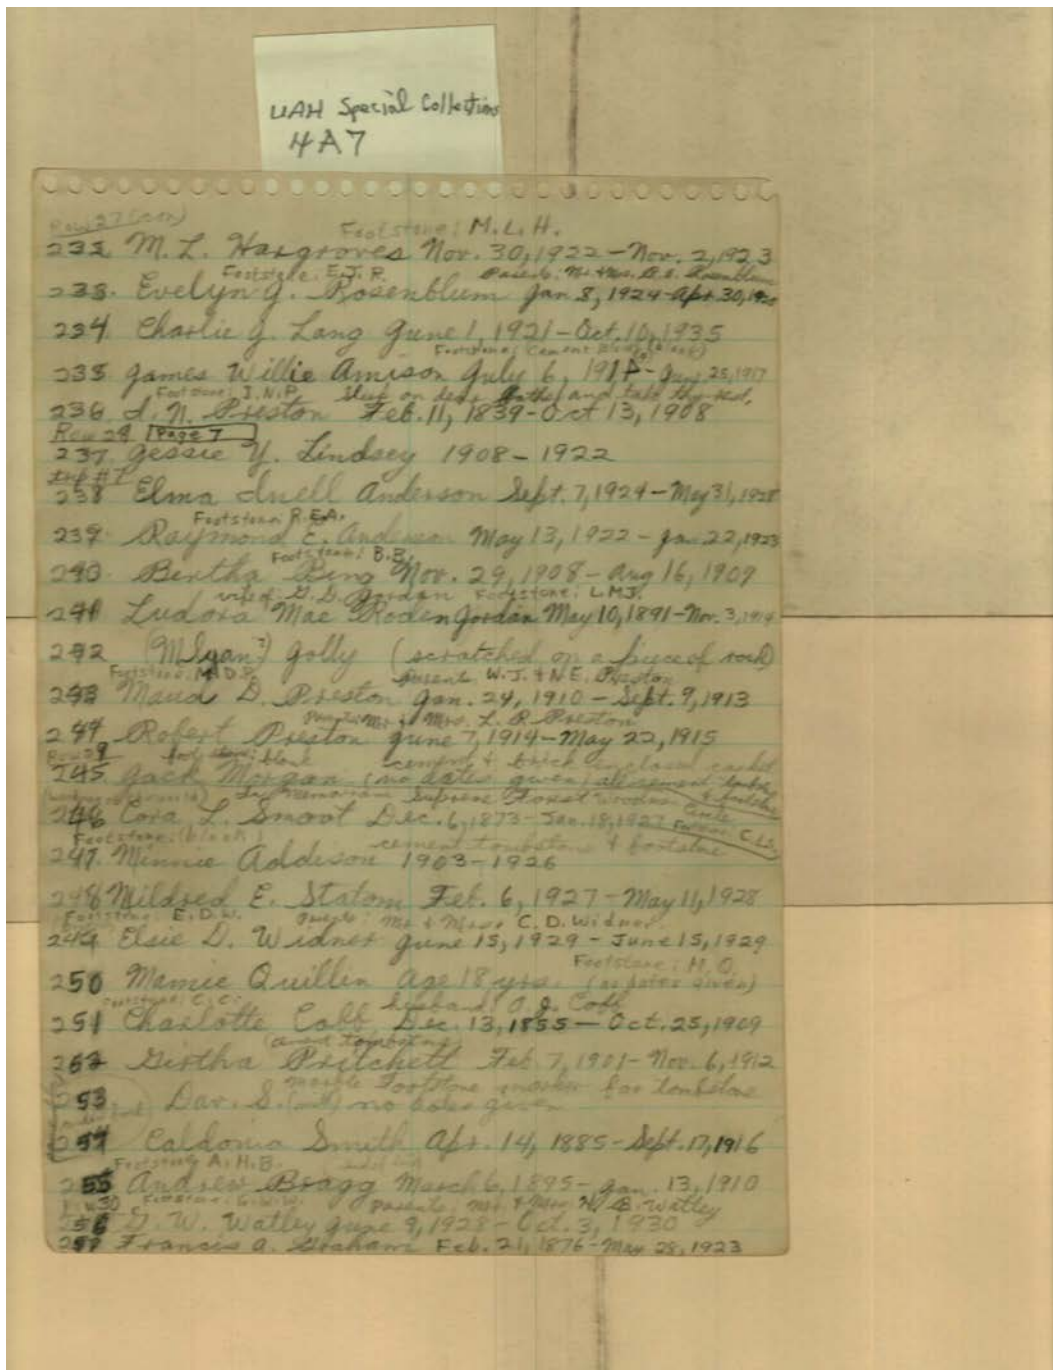 UAH Special Collections
4A7
Row 27 (con)
Footstone: M.L.H.
232 M. L. Hargroves Nov. 30, 1922 - Nov. 2, 1923
Footstone: E.J.R. Parents: Mr. & Mrs. Rosenblum
233 Evelyn J. Rosenblum Jan 8, 1924 - Apr. 30,
234 Charlie J. Lang June 1, 1921 - Oct. 10, 1935
Footstone: Cement
235 James Willie Amison July 6, - 25, 1917
Footstone: I.N.P. Sleep on and take thy rest.
236 I. N. Preston Feb. 11, 1839 - Oct 13, 1908
Row 28 Page 7
237 Jessie Y. Lindsey 1908 - 1922
238 Elma Inell Anderson Sept. 7, 1924 - May 31, 1928
Footstone: R.E.A.
239 Raymond E. Anderson May 13, 1922 - Jan. 22, 1923
Footstone: B.B.
240 Bertha Bing Nov. 29, 1908 - Aug 16, 1909
wife of G. D. Jordan Footstone: L.M.J.
241 Ludora Mae Roden Jordan May 10, 1891 - Nov. 3, 1914
242 Golly (scratched on a piece of rock)
Footstone: M.D.P. parents W. J. & N. E. Preston
243 Maud D. Preston Jan. 24, 1910 - Sept. 9, 1913
Parents: Mr & Mrs. L. R. Preston
244 Robert Preston June 7, 1914 - May 22, 1915
Row 29 blank cement & brick enclosed casket
245 Jack Morgan (no dates given) all cement
In Memoriam Supreme Forest Woodmen Circle
246 Cora L. Smoot Dec. 6, 1873 - Jan. 18, 1927 C.L.S.
Footstone: (blank) cement tombstone & footstone
247 Minnie Addison 1903-1926
248 Mildred E. Statom Feb. 6, 1927 - May 11, 1928
Footstone: E.D.W. parents: Mr & Mrs C. D. Widner
249 Elsie D. Widner June 15, 1929 - June 15, 1929
Footstone: M.Q.
250 Mamie Quillin age 18 yrs. (no dates given)
Footstone: C.C. husband: O. J. Cobb
251 Charlotte Cobb Dec. 13, 1855 - Oct. 25, 1909
tombstone)
252 Girtha Pritchett Feb. 7, 1901 - Nov. 6, 1912
marble Footstone marker for tombstone
253 Dav. S. no dates given
254 Caldonia Smith Apr. 14, 1885 - Sept. 17, 1916
Footstone: A.H.B.
255 Andrew Bragg March 6, 1895 - Jan. 13, 1910
Row 30 Footstone: G.W.W. parents: Mr. & Mrs. H. B. Watley
256 G. W. Watley June 9, 1928 - Oct. 3, 1930
257 Francis A. Graham Feb. 21, 1876 - May 28, 1923